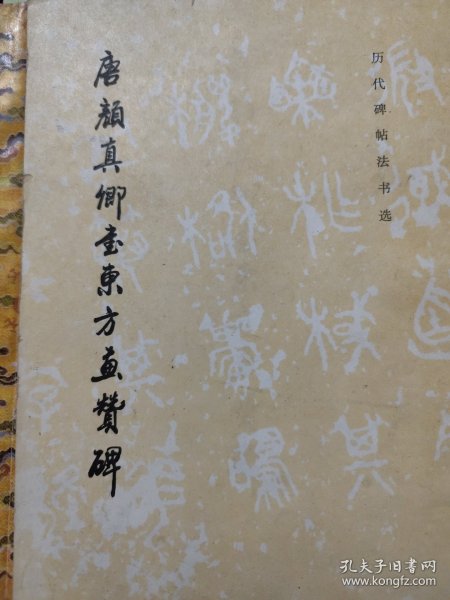 历代碑帖法书选
唐颜真卿书东方画赞碑
孔夫子旧书网
www.kongfz.com